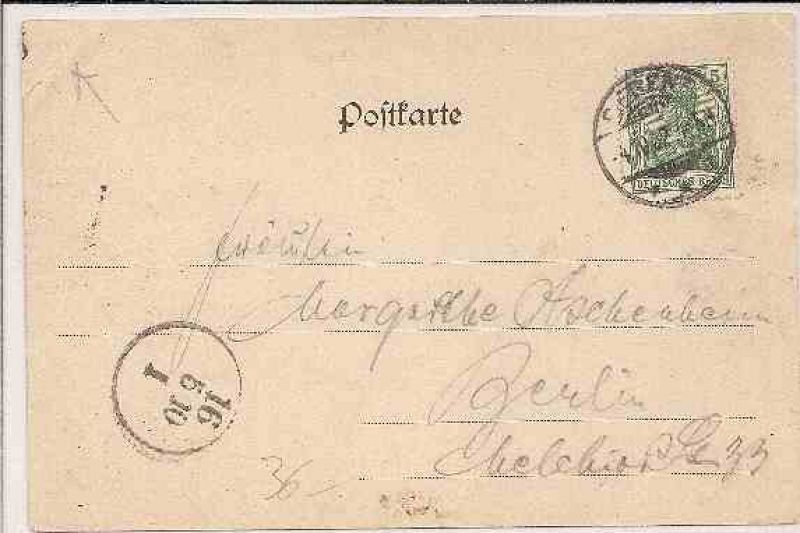 Postkarte
5
DEUTSCHES R
Fräulein
Margarethe Aschenheim
Berlin
Melchior St 33
16
6 10
I
36